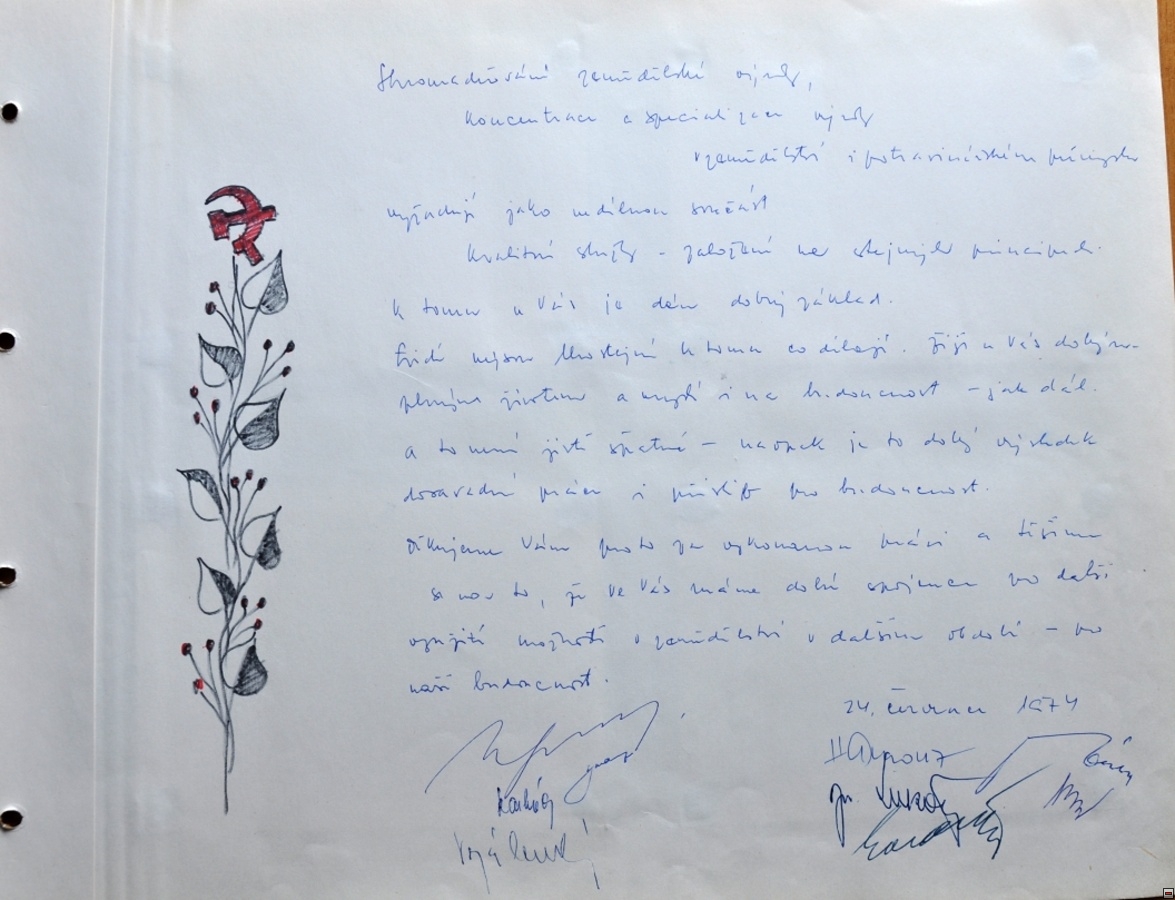 Shromažďování zemědělské výroby,
koncentrace a specializace výroby
v zemědělství i potravinářském průmyslu
vyžadují jako nedílnou součást
kvalitní služby - založené na stejných principech.
K tomu u Vás je dán dobrý základ.
Lidé nejsou lhostejní k tomu co dělají. Žijí u Vás dobrým
plným životem a myslí i na budoucnost - jak dál.
a to není jistě špatné - naopak je to dobrý výsledek
dosavadní práce i příslib pro budoucnost.
Děkujeme Vám proto za vykonanou práci a těšíme
se na to, že ve Vás máme dobré spojence pro další
využití možností v zemědělství v dalším období - pro
naši budoucnost.
24. července 1974